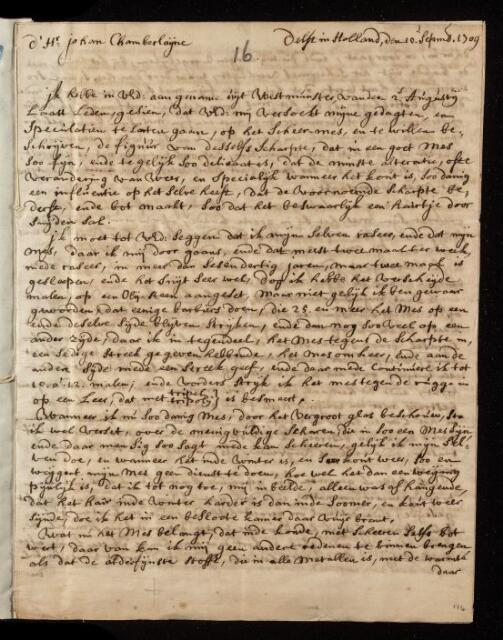 d'Hr. Johan Chamberlaijne
Delft in Holland, den 10e. Septemb. 1709
16
ik hebbe in UEd: aangename uijt Westmunster van den 2e. Augustij
laatst Leden, gesien, dat UEd: mij versoekt mijne gedagten, en
Speculatien te laten gaan, op het Scheermes, en te willen be-
schrijven, de figuur van desselfs Scharpte, dat in een goet mes
soo fijn, ende te gelijk soo delicaat is, dat de minste alteratie, ofte
verandering van weer, en specialijk wanneer het kout is, soo danig
een influentie op het selve heeft, dat de voornoemde Scharpte be-
derft, ende bot maakt, soo dat het beswaarlijk een hairtje door
snijden sal.
ik moet tot UEd: seggen dat ik mijn selven raseer, ende dat mijn
mes, daar ik mij door gaans, ende dat meest twee maal ter week,
mede raseer, in meer dan sesendertig jaren, maar twee maal is
geslepen, ende het snijt seer wel, dog ik hebbe het verscheijde
malen, op een Olij steen aangeset, maar niet gelijk ik ben gewaar
geworden, dat eenige barbiers doen, die 25. en meer het mes op een
ende deselve sijde blijven strijken, ende dan nog soo veel op een
ander sijde, daar ik in tegendeel, het mes tegen de Scharpte in,
een eenige streek gegeven hebbende, het mes om keer, ende aan de
ander sijde mede een streek geef, ende daar mede continuere ik tot
10. a 12. malen, ende vorders strijk ik het mes tegen de rugge in
op een Leer, dat met tripoli is besmeert.
Wanneer ik nu soo danig mes, door het vergroot glas beschouw, soo
ik wel verset, over de menigvuldige scharen, die in soo een mes sijn
ende daar men sig soo sagt mede kan scheeren, gelijk ik mijn sel-
ven doe, en wanneer het inde winter is, en seer kout weer, soo en
weijgert mijn mes geen dienst te doen, hoe wel het dan een weijnig
pijnelijk is, dat ik tot nog toe, mij in beelde, alleen was af hangende,
dat het hair inde winter harder is dan inde Soomer, en kout weer
sijnde, doe ik het in een beslote kamer daar vuijr brent.
Wat nu het mes belangt, dat inde koude, met scheeren selfs bot
wert, daar van kan ik mij geen andere redenen te binnen brengen
als dat de alderfijnste stoffe, die in alle metallen is, met de warmte
daar